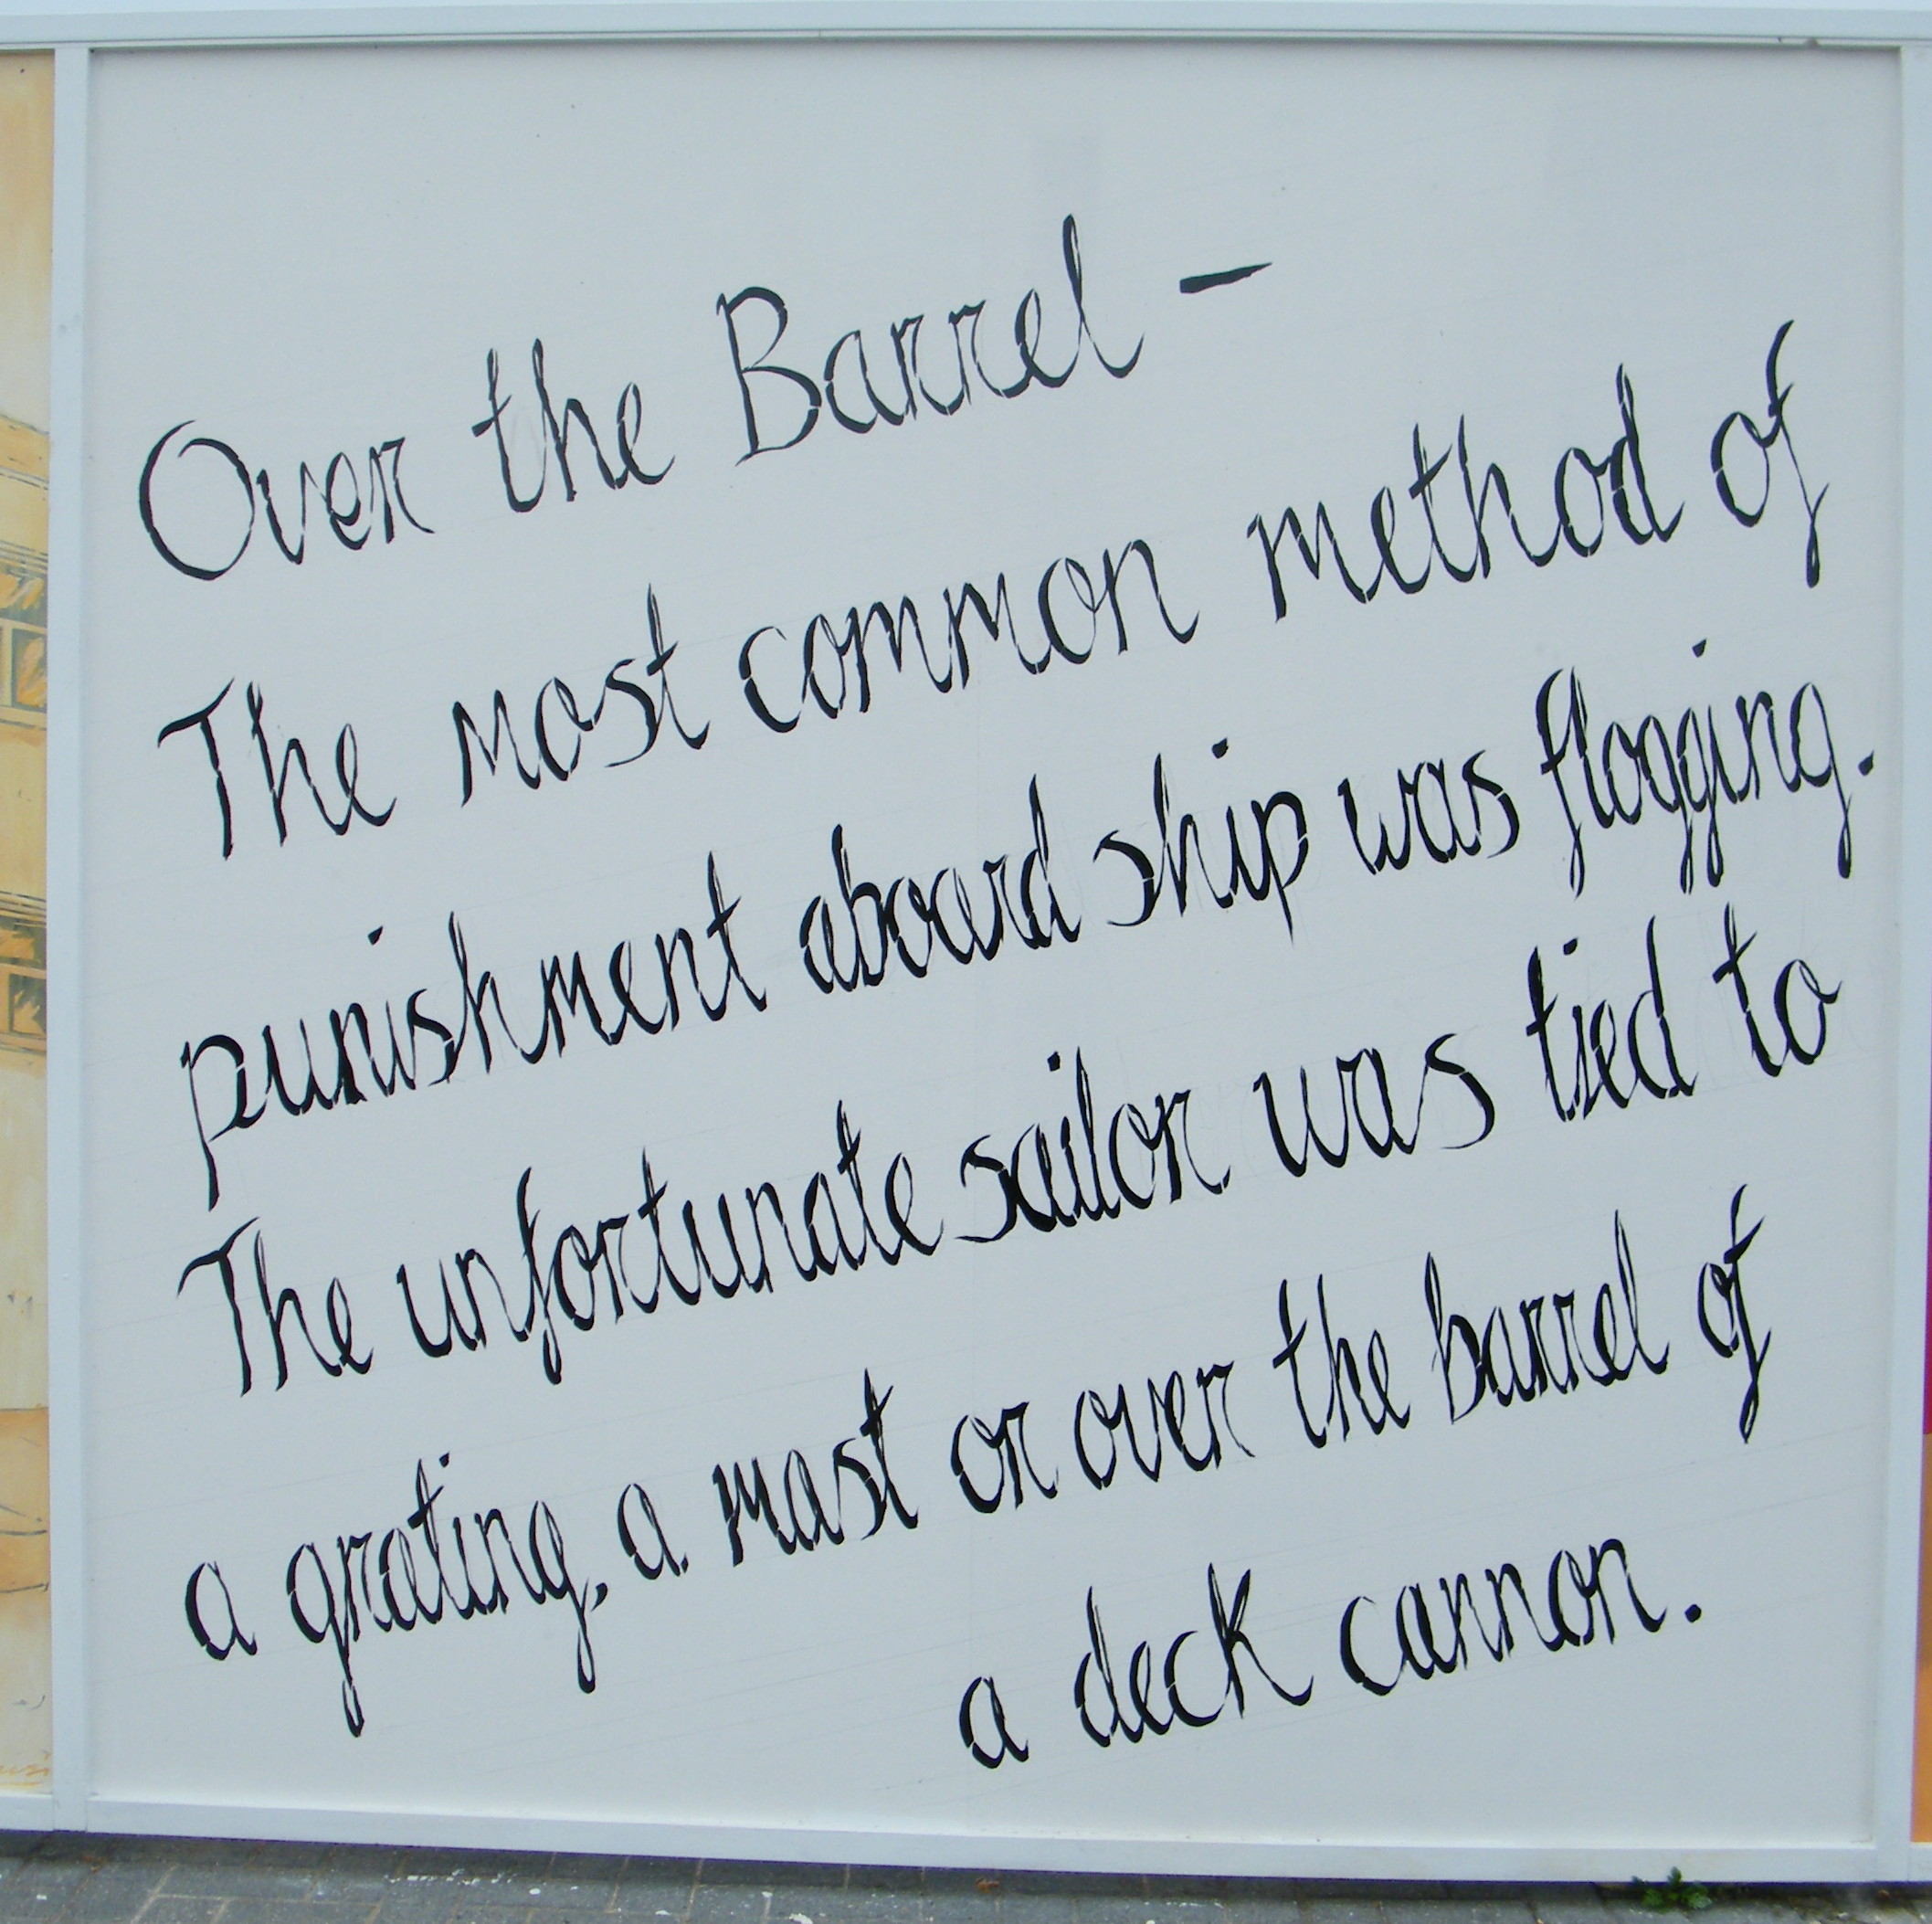 Over the Barrel –
The most common method of
punishment aboard ship was flogging.
The unfortunate sailor was tied to
a grating, a mast or over the barrel of
a deck cannon.